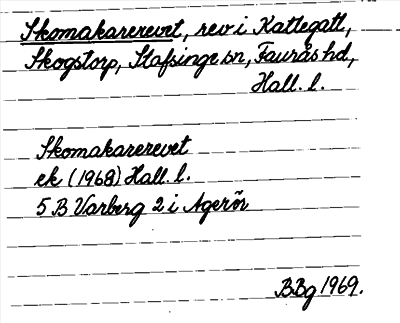 Skomakarerevet, rev i Kattegatt,
Skogstorp, Stafsinge sn, Faurås hd,
Hall. l.
Skomakarerevet
ek (1968) Hall. l.
5 B Varberg 2 i Agerör
BBg 1969.